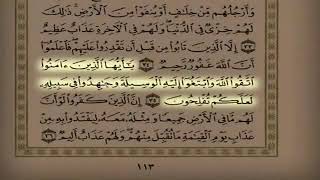 وَأَرْجُلُهُم مِّنْ خِلَافٍ أَوْ يُنفَوْا مِنَ الْأَرْضِ ذَٰلِكَ
لَهُمْ خِزْيٌ فِي الدُّنْيَا وَلَهُمْ فِي الْآخِرَةِ عَذَابٌ عَظِيمٌ
٣٣ إِلَّا الَّذِينَ تَابُوا مِن قَبْلِ أَن تَقْدِرُوا عَلَيْهِمْ فَاعْلَمُوا
أَنَّ اللَّهَ غَفُورٌ رَّحِيمٌ ٣٤ يَا أَيُّهَا الَّذِينَ ءَامَنُوا
اتَّقُوا اللَّهَ وَابْتَغُوا إِلَيْهِ الْوَسِيلَةَ وَجَاهِدُوا فِي سَبِيلِهِ
لَعَلَّكُمْ تُفْلِحُونَ ٣٥ إِنَّ الَّذِينَ كَفَرُوا لَوْ أَنَّ
لَهُم مَّا فِي الْأَرْضِ جَمِيعًا وَمِثْلَهُ مَعَهُ لِيَفْتَدُوا بِهِ مِنْ
عَذَابِ يَوْمِ الْقِيَامَةِ مَا تُقُبِّلَ مِنْهُمْ وَلَهُمْ عَذَابٌ أَلِيمٌ ٣٦
١١٣